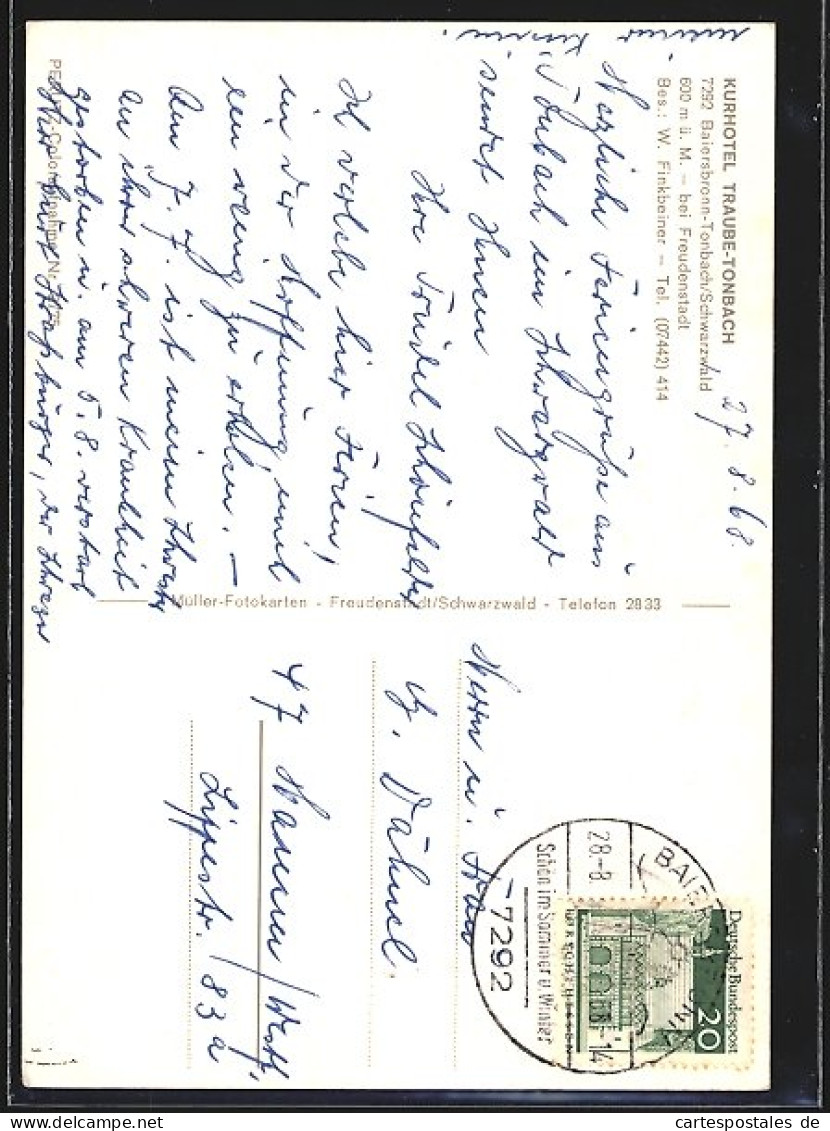 KURHOTEL TRAUBE-TONBACH
7292 Baiersbronn-Tonbach/Schwarzwald
600 m ü. M. – bei Freudenstadt
Bes.: W. Finkbeiner – Tel. (07442) 414
27. 8. 68.
Herzliche Feriengrüße aus
Tonbach im Schwarzwald
sendet Ihnen
Ihre Trudel
Ich verlebe hier Ferien,
in der Hoffnung, mich
ein wenig zu erholen. –
Am 7. 7. ist meine Schwester
an ihrer schweren Krankheit
gestorben u. am 5. 8. verstarb
Herr Straßburger, der Schwager
meiner
Müller-Fotokarten - Freudenstadt/Schwarzwald - Telefon 2833
Herrn u. Frau
G. Dähnel.
47 Hamm/Westf.
Lippestr. 183a
Deutsche Bundespost
20
28.-8.68-14
Schön im Sommer u. Winter
7292